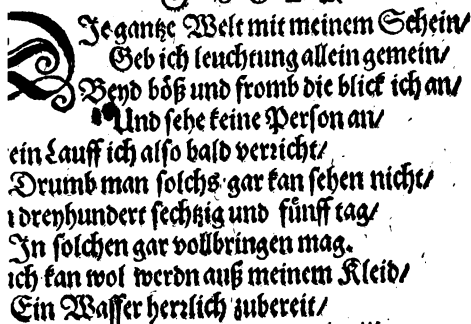 DJe gantze Welt mit meinem Schein/
Geb ich leuchtung allein gemein/
Beyd böß und fromb die blick ich an/
Und sehe keine Person an/
ein Lauff ich also bald verzicht/
Drumb man solchs gar kan sehen nicht/
dreyhundert sechtzig und fünff tag/
In solchen gar vollbringen mag.
ich kan wol werdn auß meinem Kleid/
Ein Wasser herzlich zubereit/